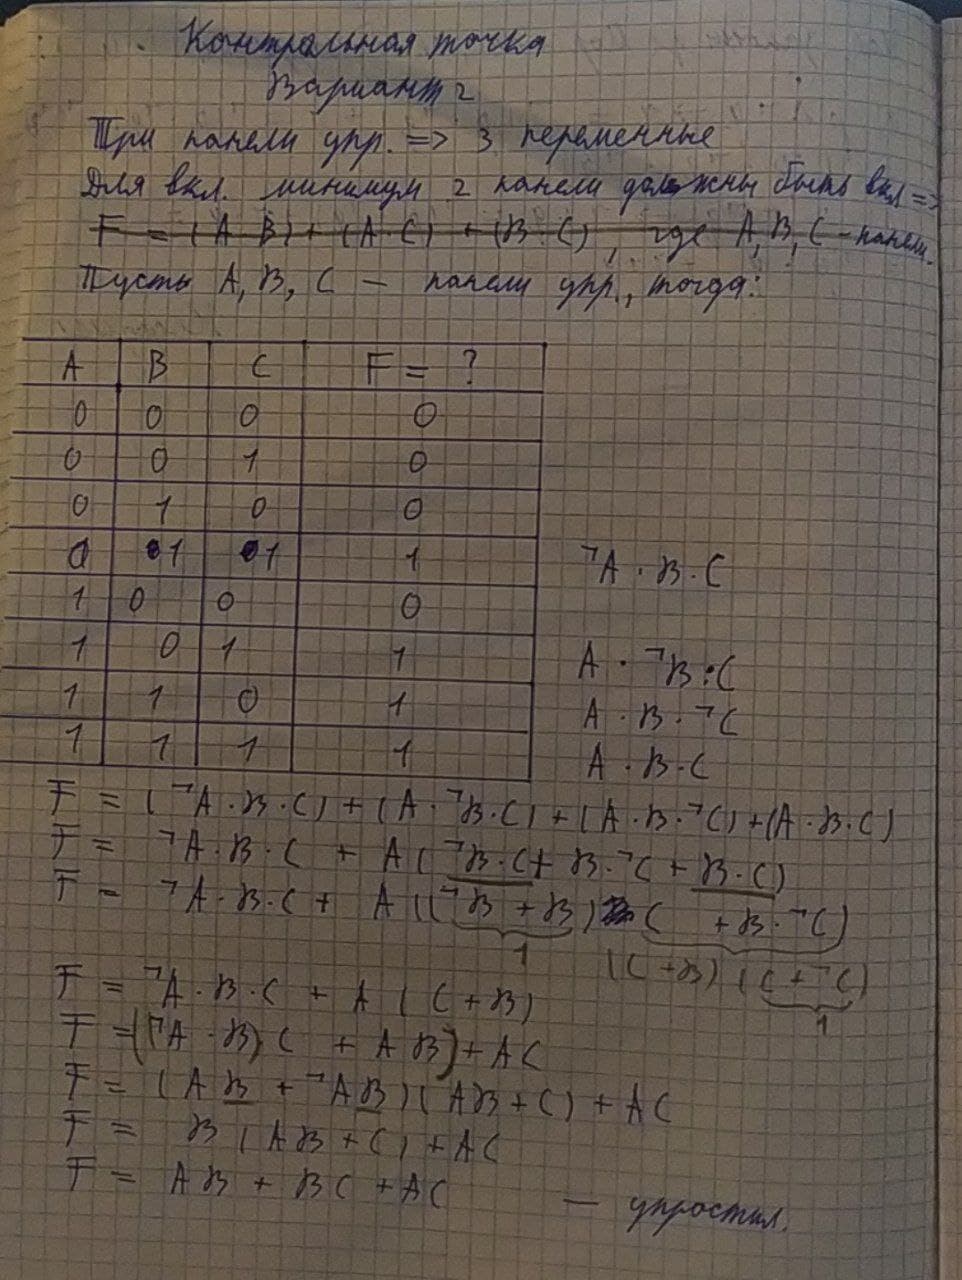 Контрольная точка
Вариант 2
Три панели упр. => 3 переменные
Для вкл. минимум 2 панели должны быть вкл =>
F = (A B) + (A·C) + (B·C), где A, B, C - панели.
Пусть A, B, C — панели упр., тогда:
A B C F = ?
0 0 0 0
0 0 1 0
0 1 0 0
0 1 1 1 ¬A · B · C
1 0 0 0
1 0 1 1 A · ¬B · C
1 1 0 1 A · B · ¬C
1 1 1 1 A · B · C
F = (¬A · B · C) + (A · ¬B · C) + (A · B · ¬C) + (A · B · C)
F = ¬A · B · C + A (¬B · C + B · ¬C + B · C)
F = ¬A · B · C + A ((¬B + B) C + B · ¬C)
1 (C + B) (C + ¬C)
1
F = ¬A · B · C + A (C + B)
F = ((¬A · B) C + A B) + A C
F = (A B + ¬A B) (A B + C) + A C
F = B (A B + C) + A C
F = A B + B C + A C — упростил.